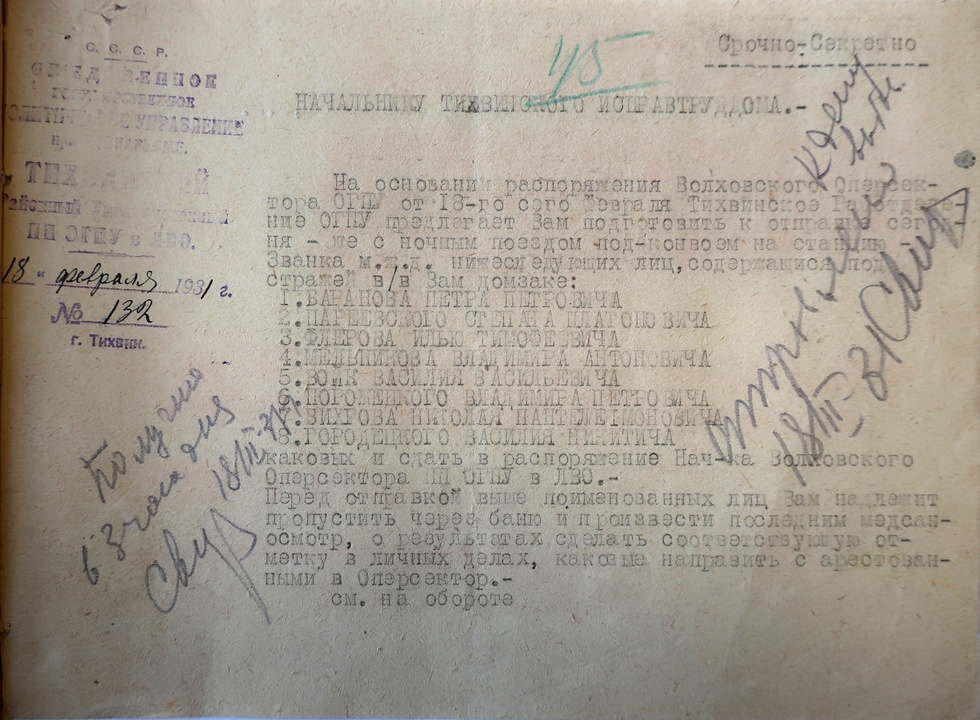 45
Срочно-Секретно
С. С. С. Р.
ГОСУДАРСТВЕННОЕ
ПОЛИТИЧЕСКОЕ УПРАВЛЕНИЕ
Районный
ПП ОГПУ в ЛВО.
18 " февраля 1931 г.
№ 132
г. Тихвин.
НАЧАЛЬНИКУ ТИХВИНСКОГО ИСПРАВТРУДДОМА.-
На основании распоряжения Волховского Оперсек-
тора ОГПУ от 18-го сего февраля Тихвинское Рай отделе-
ние ОГПУ предлагает Вам подготовить к отправке сего-
ня - же с ночным поездом под-конвоем на станцию
Званка м.ж.д. нижеследующих лиц, содержащихся под
стражей в/в Вам домзаке:
1.БАРАНОВА ПЕТРА ПЕТРОВИЧА
2.ПАРЕЕВСКОГО СТЕПАНА ПЛАТОНОВИЧА
3.ФЛЕРОВА ИЛЬЮ ТИМОФЕЕВИЧА
4.МЕЛЬНИКОВА ВЛАДИМИРА АНТОНОВИЧА
5.ВОИК ВАСИЛИЯ ВАСИЛЬЕВИЧА
6.ПОГОМЕЦКОГО ВЛАДИМИРА ПЕТРОВИЧА
7.ВИХРОВА НИКОЛАЯ ПАНТЕЛЕЙМОНОВИЧА
8.ГОРОДЕЦКОГО ВАСИЛИЯ НИКИТИЧА
каковых и сдать в распоряжение Нач-ка Волховского
Оперсектора ПП ОГПУ в ЛВО.-
Перед отправкой выше поименованных лиц Вам надлежит
пропустить через баню и произвести последним медсан-
осмотр, о результатах сделать соответствующую от-
метку в личных делах, каковые направить с арестован-
ными в Оперсектор.-
см. на обороте
Получено
в 3 часа дня
18/II-31г.
К делу
18/II-31